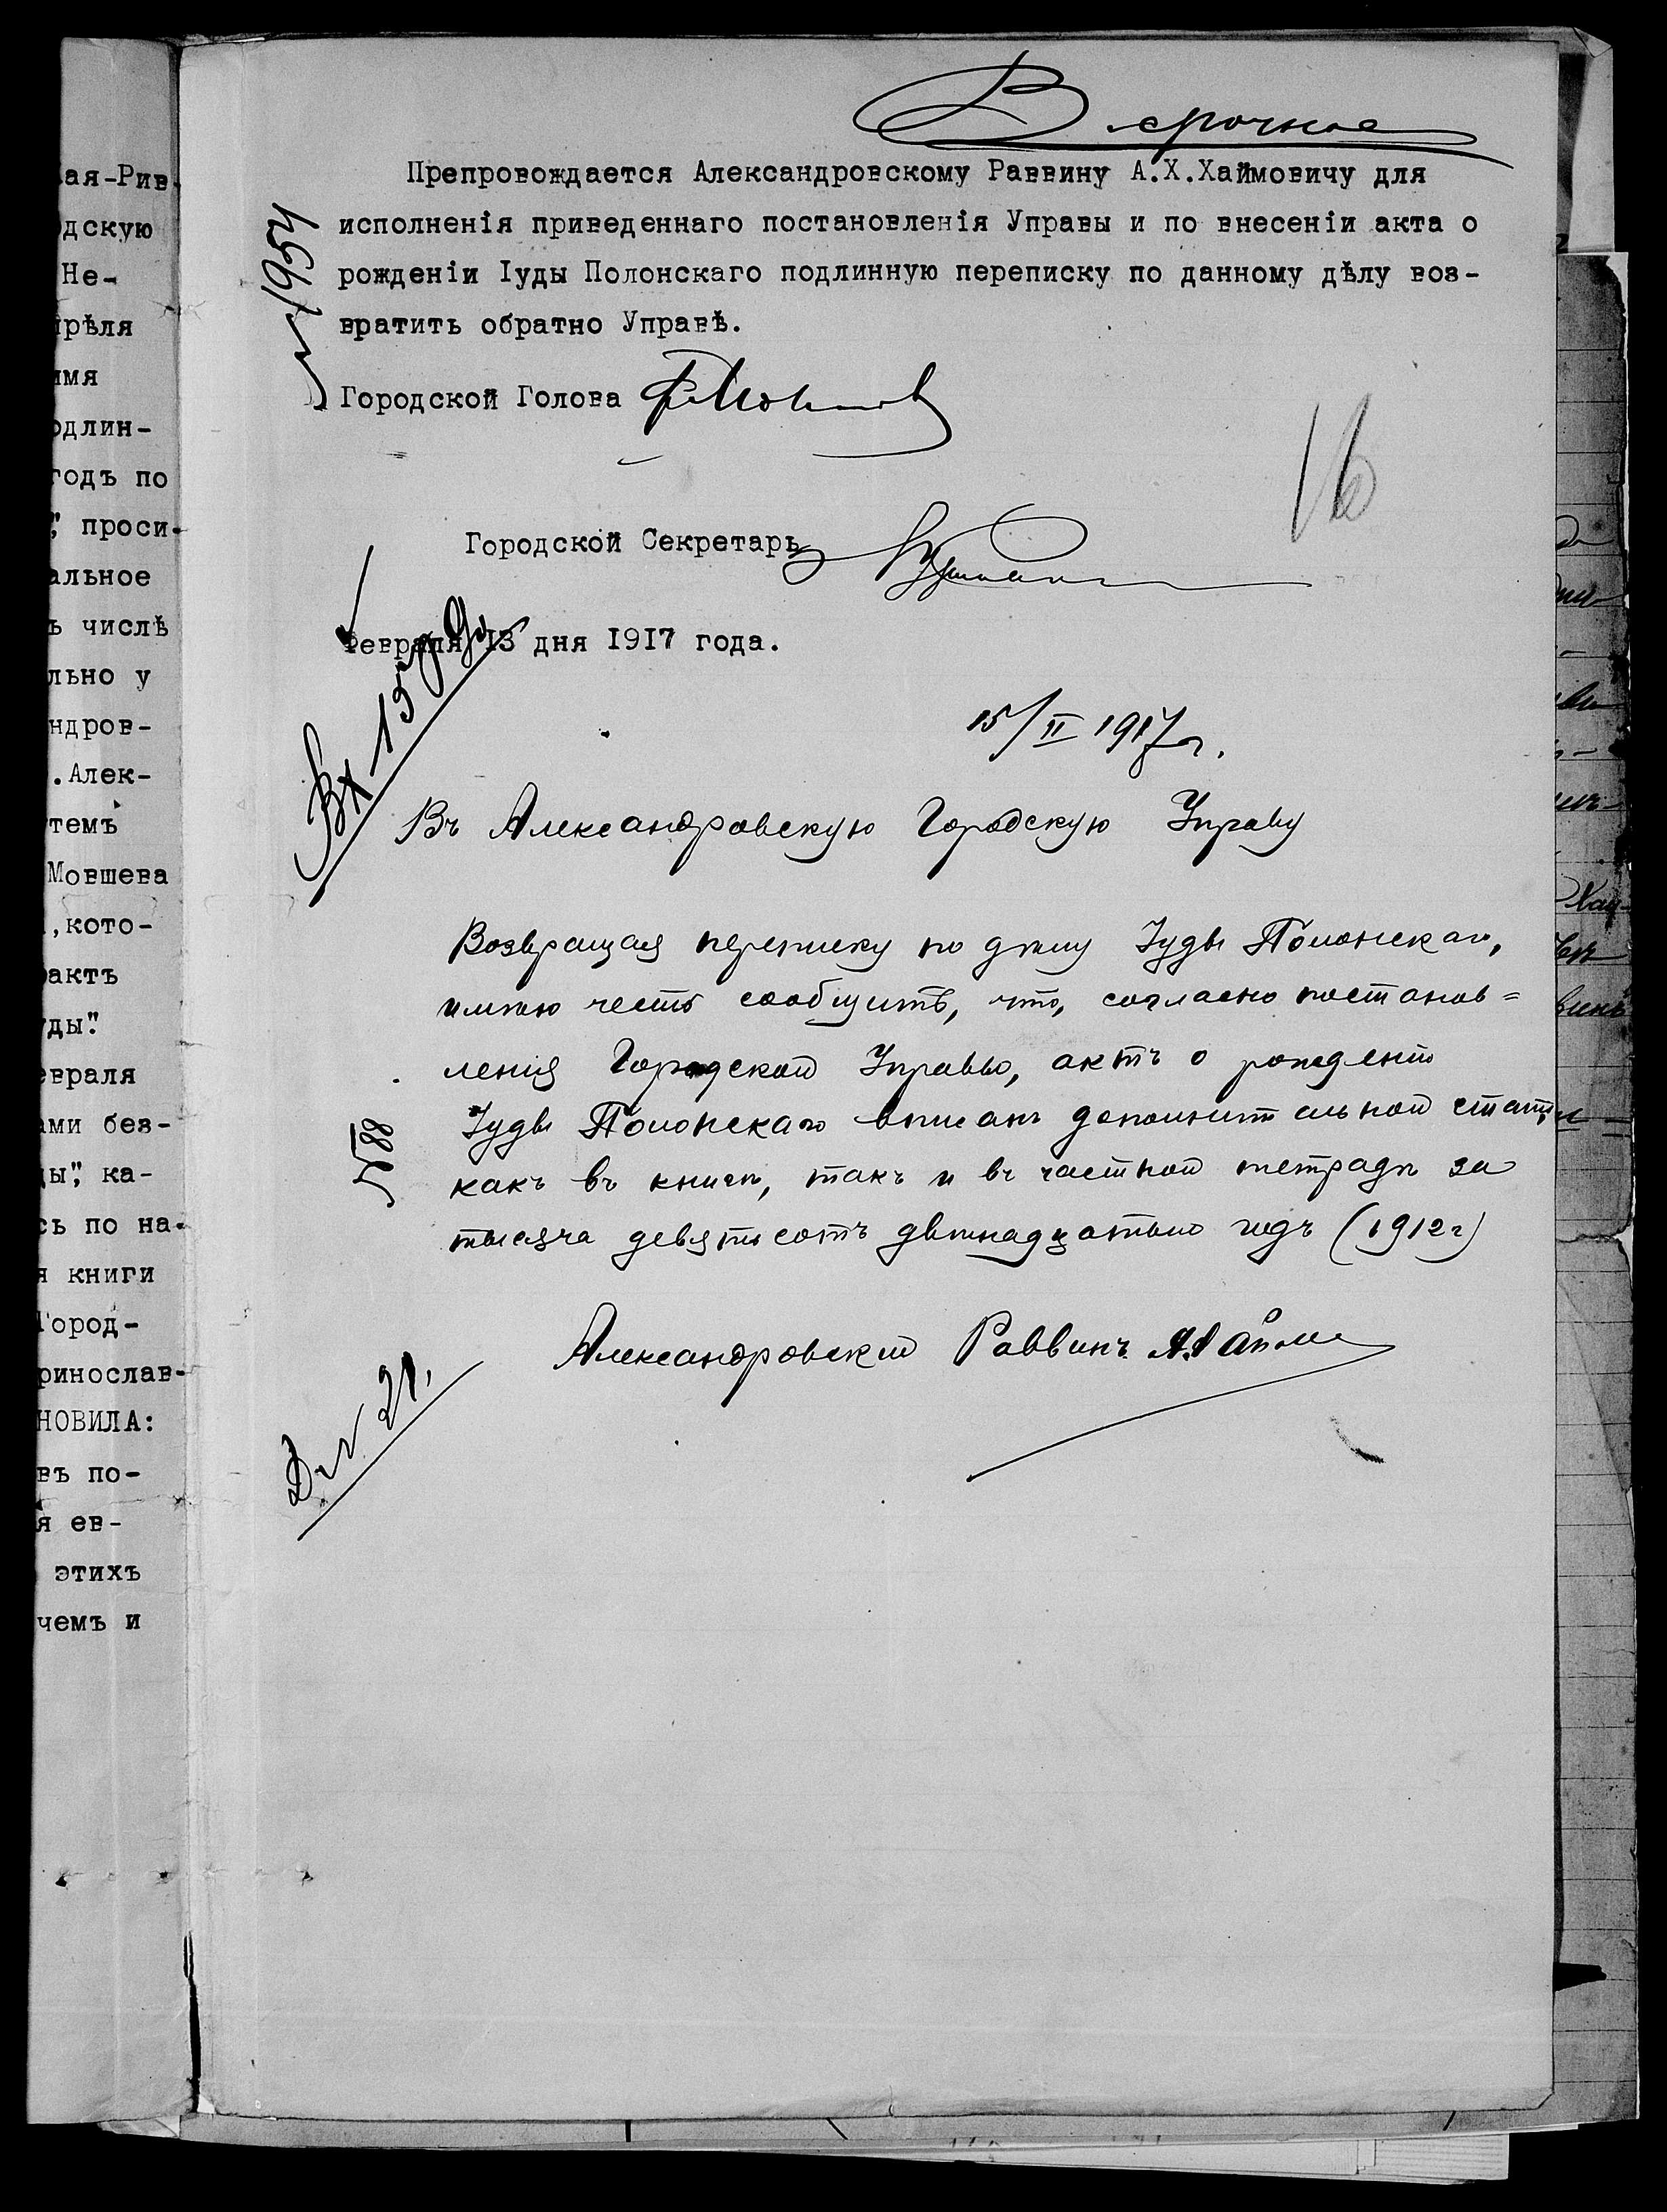 В. срочное
Препровождается Александровскому Раввину А.Х.Хаймовичу для
исполненія приведеннаго постановленія Управы и по внесеніи акта о
рожденіи Іуды Полонскаго подлинную переписку по данному дѣлу воз-
вратить обратно Управѣ.
Городской Голова
№ 1954
16
Городской Секретарь
Февраля 13 дня 1917 года.
15/II 1917 г.
Въ Александровскую Городскую Управу
Возвращая переписку по дѣлу Іуды Полонскаго,
имѣю честь сообщить, что, согласно постанов=
ленія Городской Управы, актъ о рожденіи
№ 88
Іуды Полонскаго вписанъ дополнительной статьей
какъ въ книгѣ, такъ и въ частной тетради за
тысяча девятьсотъ двѣнадцатый годъ (1912 г)
Александровскій Раввинъ
Д. № 21.
ая-Рив
дскую
Не-
прѣля
имя
одлин-
годъ по
", проси-
альное
ъ числѣ
льно у
ндров-
.Алек-
темъ
Мовшева
,кото-
актъ
уды".
евраля
ами без-
ды", ка-
сь по на-
я книги
Город-
ринослав-
НОВИЛА:
въ по-
я ев-
этихъ
чемъ и